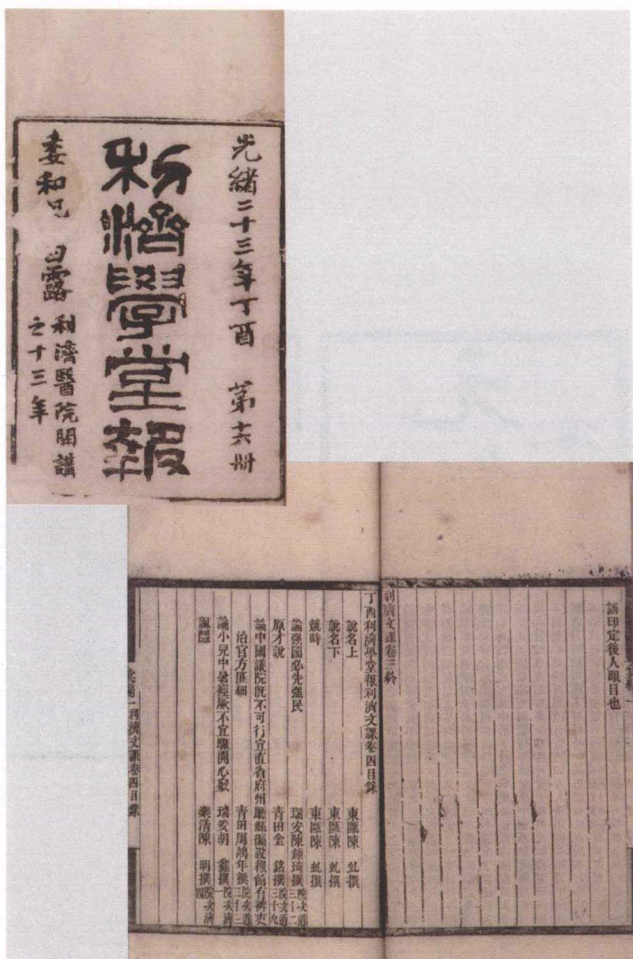 光緒二十三年丁酉 第十六冊
利濟學堂報
委和兄 白露 利濟醫院開講
之十三年
語印定後人眼目也
利濟文課卷三終
丁酉利濟學堂報利濟文課卷四目錄
說名上 東甌陳 虬撰
說名下 東甌陳 虬撰
競時 東甌陳 虬撰
論強國必先強民 瑞安陳鍾琦撰
原才說 青田金 銘撰
論中國議院旣不可行宜直省府州
治官方匪細 青田周鴻年撰
論小兒中暑痙厥不宜 開心 瑞安胡 鑫撰
諷隱 樂清陳 明撰
利濟文課卷四目錄